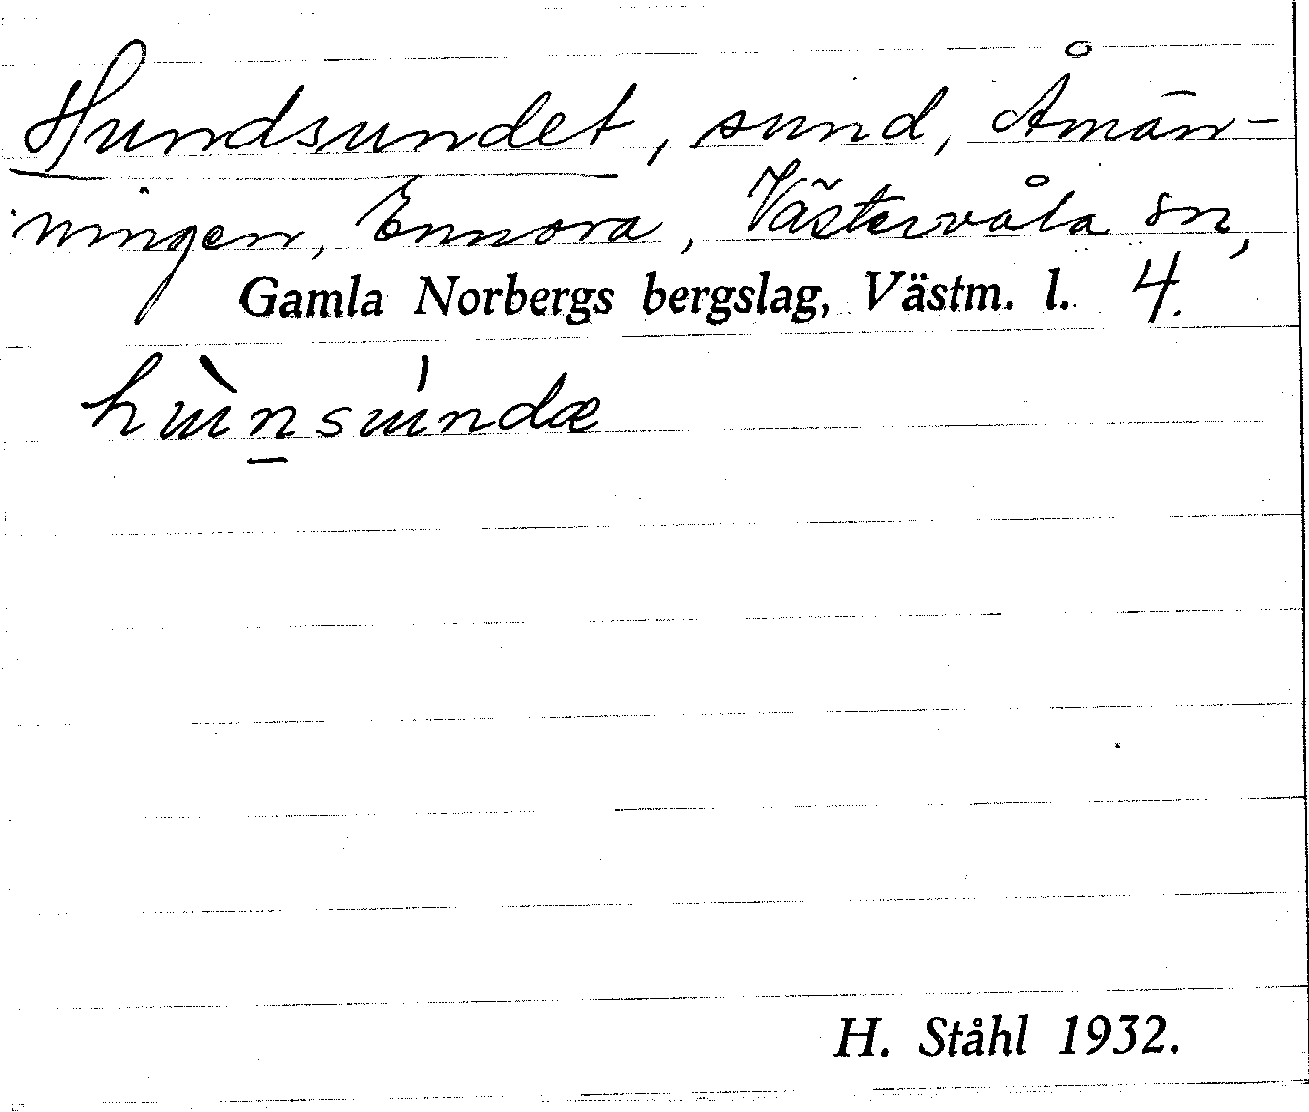 Hundsundet, sund, Åmän-
ningen, Ennora, Västervåla sn,
Gamla Norbergs bergslag, Västm. l. 4.
hùnsúndæ
H. Ståhl 1932.